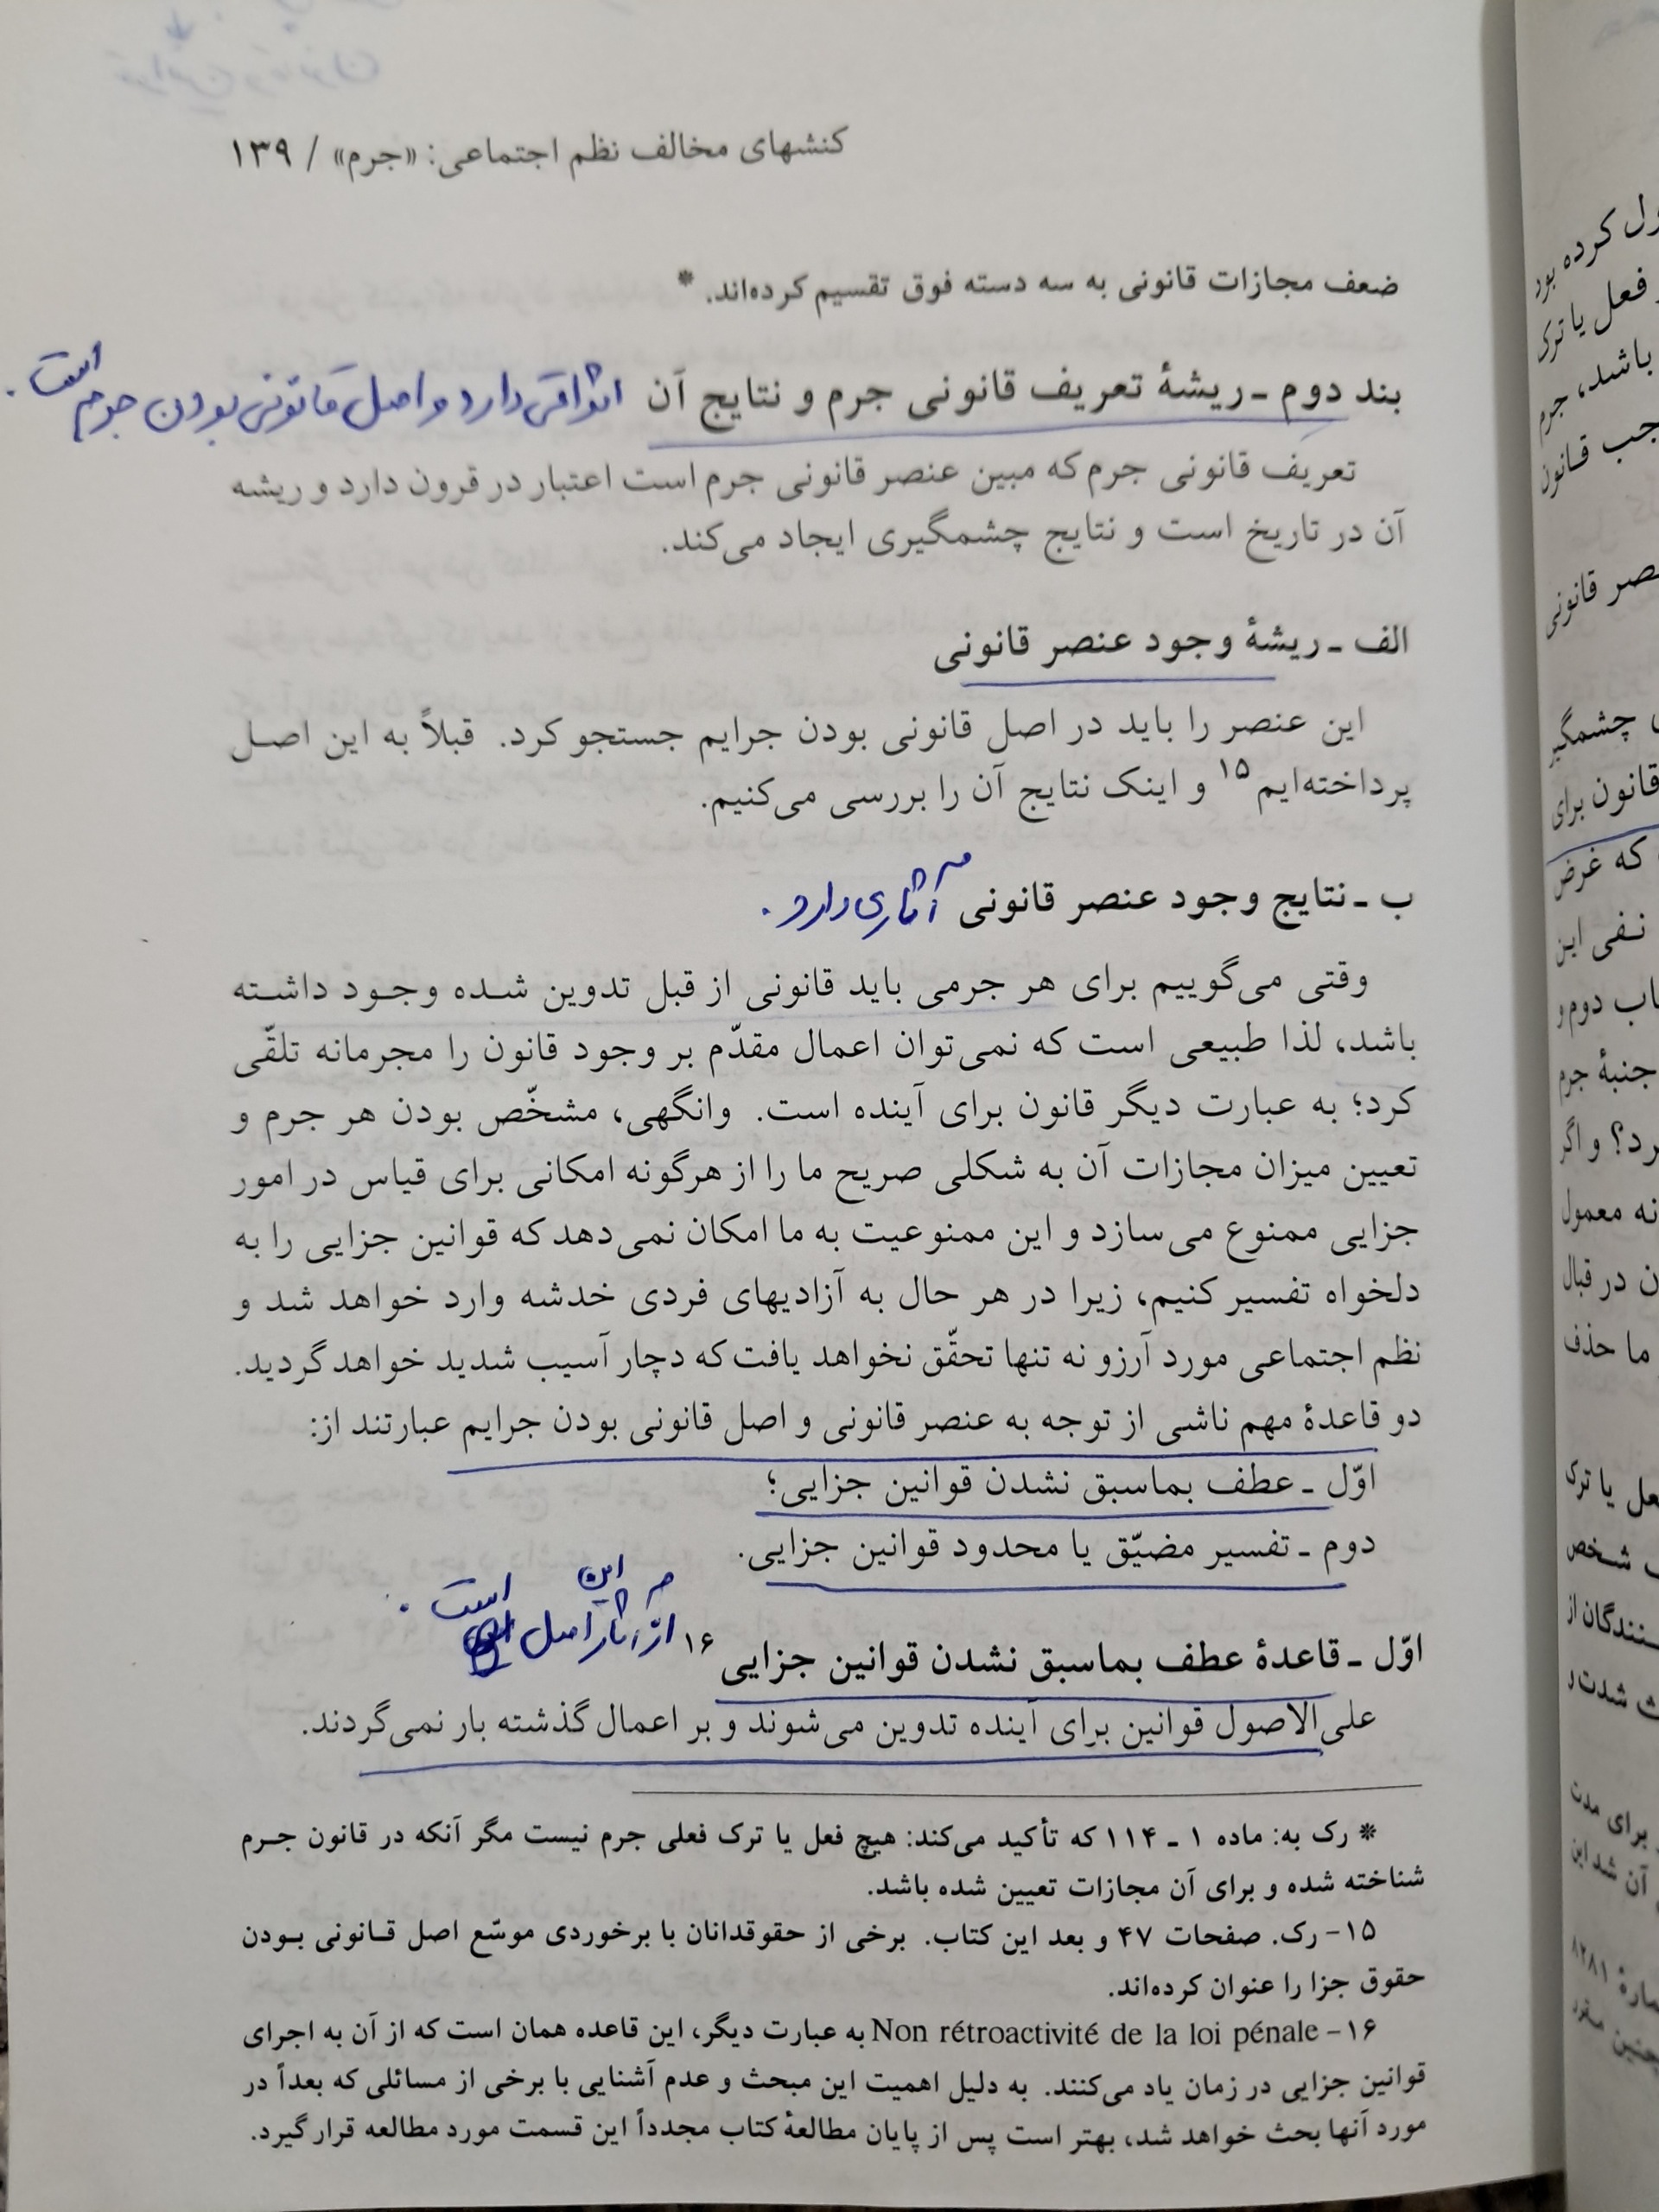 کنشهای مخالف نظم اجتماعی: «جرم» / ۱۳۹
ضعف مجازات قانونی به سه دسته فوق تقسیم کرده‌اند. *
بند دوم ـ ریشۀ تعریف قانونی جرم و نتایج آن
دارد و اصل قانونی بودن جرم است.
تعریف قانونی جرم که مبین عنصر قانونی جرم است اعتبار در قرون دارد و ریشه
آن در تاریخ است و نتایج چشمگیری ایجاد می‌کند.
الف ـ ریشۀ وجود عنصر قانونی
این عنصر را باید در اصل قانونی بودن جرایم جستجو کرد. قبلاً به این اصل
پرداخته‌ایم۱۵ و اینک نتایج آن را بررسی می‌کنیم.
ب ـ نتایج وجود عنصر قانونی آثاری دارد.
وقتی می‌گوییم برای هر جرمی باید قانونی از قبل تدوین شده وجود داشته
باشد، لذا طبیعی است که نمی‌توان اعمال مقدّم بر وجود قانون را مجرمانه تلقّی
کرد؛ به عبارت دیگر قانون برای آینده است. وانگهی، مشخّص بودن هر جرم و
تعیین میزان مجازات آن به شکلی صریح ما را از هرگونه امکانی برای قیاس در امور
جزایی ممنوع می‌سازد و این ممنوعیت به ما امکان نمی‌دهد که قوانین جزایی را به
دلخواه تفسیر کنیم، زیرا در هر حال به آزادیهای فردی خدشه وارد خواهد شد و
نظم اجتماعی مورد آرزو نه تنها تحقّق نخواهد یافت که دچار آسیب شدید خواهد گردید.
دو قاعدۀ مهم ناشی از توجه به عنصر قانونی و اصل قانونی بودن جرایم عبارتند از:
اوّل ـ عطف بماسبق نشدن قوانین جزایی؛
دوم ـ تفسیر مضیّق یا محدود قوانین جزایی.
اوّل ـ قاعدۀ عطف بماسبق نشدن قوانین جزایی۱۶
از آثار این اصل است.
علی‌الاصول قوانین برای آینده تدوین می‌شوند و بر اعمال گذشته بار نمی‌گردند.
* رک به: ماده ۱ ـ ۱۱۴ که تأکید می‌کند: هیچ فعل یا ترک فعلی جرم نیست مگر آنکه در قانون جرم
شناخته شده و برای آن مجازات تعیین شده باشد.
۱۵- رک. صفحات ۴۷ و بعد این کتاب. برخی از حقوقدانان با برخوردی موسّع اصل قانونی بودن
حقوق جزا را عنوان کرده‌اند.
۱۶- Non rétroactivité de la loi pénale به عبارت دیگر، این قاعده همان است که از آن به اجرای
قوانین جزایی در زمان یاد می‌کنند. به دلیل اهمیت این مبحث و عدم آشنایی با برخی از مسائلی که بعداً در
مورد آنها بحث خواهد شد، بهتر است پس از پایان مطالعۀ کتاب مجدداً این قسمت مورد مطالعه قرار گیرد.
ول کرده بود
فعل یا ترک
باشد، جرم
جب قانون
قانونی
چشمگیر
قانون برای
که غرض
نفی این
اب دوم و
جنبۀ جرم
رد؟ و اگر
نه معمول
ن در قبال
ما حذف
عل یا ترک
شخص
نندگان از
شدت
برای مدت
آن شد این
۸۲۸۱